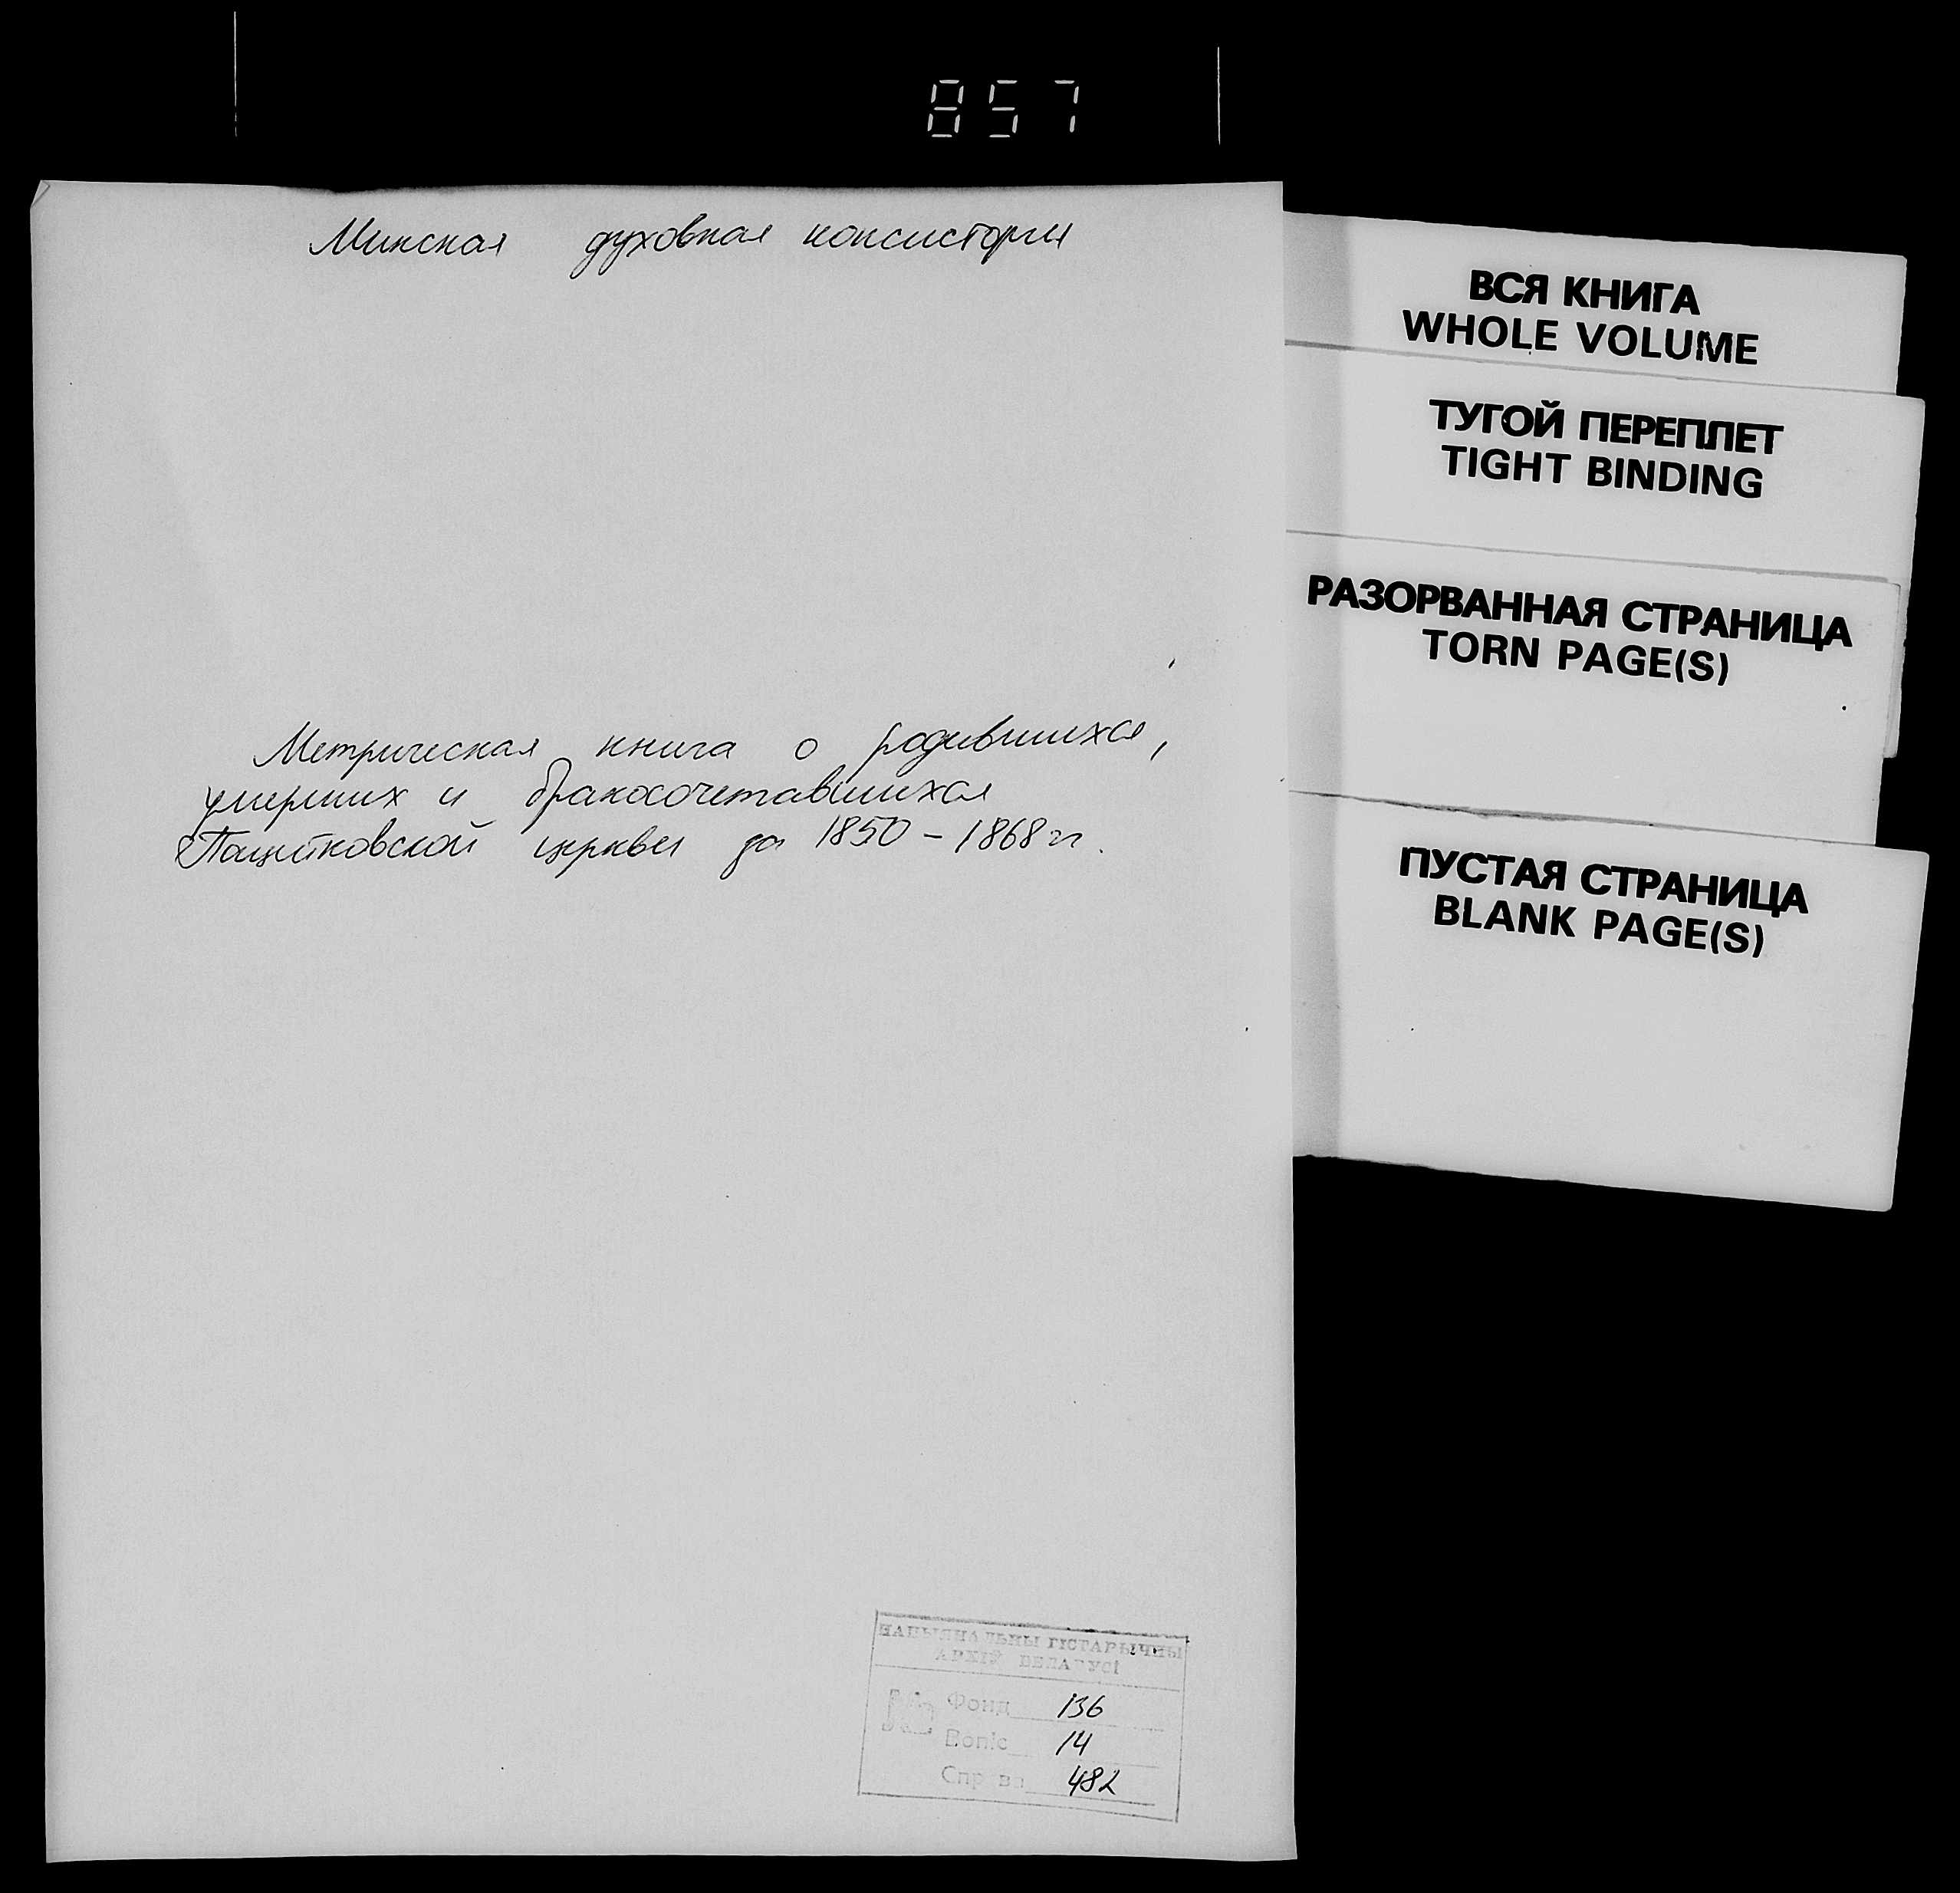 857
Минская духовная консистория
Метрическая книга о родившихся,
умерших и бракосочетавшихся
церкви за 1850-1868 гг.
ВСЯ КНИГА
WHOLE VOLUME
ТУГОЙ ПЕРЕПЛЕТ
TIGHT BINDING
РАЗОРВАННАЯ СТРАНИЦА
TORN PAGE(S)
ПУСТАЯ СТРАНИЦА
BLANK PAGE(S)
НАЦЫЯНАЛЬНЫ ГІСТАРЫЧНЫ
АРХІЎ БЕЛАРУСІ
Фонд 136
Вопіс 14
Справа 482